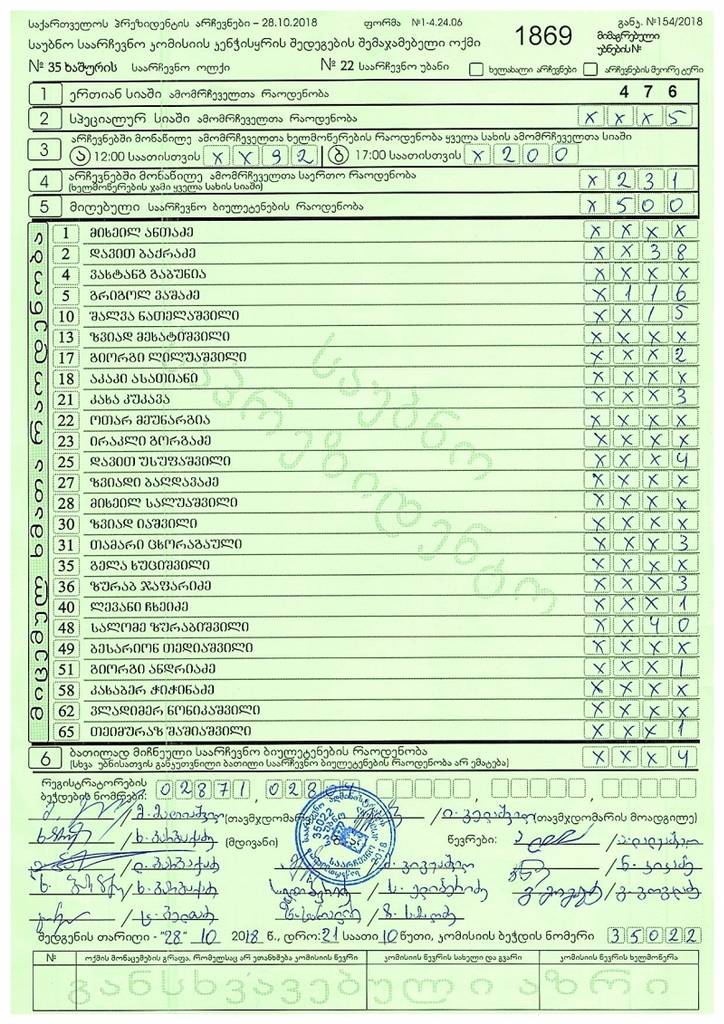 საქართველოს პრეზიდენტის არჩევნები – 28.10.2018 ფორმა №1-4.24.06 განკ. №154/2018
საუბნო საარჩევნო კომისიის კენჭისყრის შედეგების შემაჯამებელი ოქმი 1869 მიმაგრებული უბნების №
№ 35 ხაშურის საარჩევნო ოლქი № 22 საარჩევნო უბანი ხელახალი არჩევნები არჩევნების მეორე ტური
1 ერთიან სიაში ამომრჩეველთა რაოდენობა 476
2 სპეციალურ სიაში ამომრჩეველთა რაოდენობა X X X 5
3 არჩევნებში მონაწილე ამომრჩეველთა ხელმოწერების რაოდენობა ყველა სახის ამომრჩეველთა სიაში
ა 12:00 საათისთვის X X 9 2 ბ 17:00 საათისთვის X 2 0 0
4 არჩევნებში მონაწილე ამომრჩეველთა საერთო რაოდენობა X 2 3 1
(ხელმოწერების ჯამი ყველა სახის სიაში)
5 მიღებული საარჩევნო ბიულეტენების რაოდენობა X 5 0 0
მიცემულ ხმათა რაოდენობა
1 მიხეილ ანთაძე X X X X
2 დავით ბაქრაძე X X 3 8
4 ვახტანგ გაბუნია X X X X
5 გრიგოლ ვაშაძე X 1 1 6
10 შალვა ნათელაშვილი X X 1 5
13 ზვიად მეხატიშვილი X X X X
17 გიორგი ლილუაშვილი X X X 2
18 აკაკი ასათიანი X X X X
21 კახა კუკავა X X X 3
22 ოთარ მეუნარგია X X X X
23 ირაკლი გორგაძე X X X X
25 დავით უსუფაშვილი X X X 4
27 ზვიადი ბაღდავაძე X X X X
28 მიხეილ სალუაშვილი X X X X
30 ზვიად იაშვილი X X X X
31 თამარი ცხორაგაული X X X 3
35 გელა ხუციშვილი X X X X
36 ზურაბ ჯაფარიძე X X X 3
40 ლევანი ჩხეიძე X X X 1
48 სალომე ზურაბიშვილი X X 4 0
49 ბესარიონ თედიაშვილი X X X X
51 გიორგი ანდრიაძე X X X 1
58 კახაბერ ჭიჭინაძე X X X X
62 ვლადიმერ ნონიკაშვილი X X X X
65 თეიმურაზ შაშიაშვილი X X X 1
საუბნო
საპრეზიდენტო
6 ბათილად მიჩნეული საარჩევნო ბიულეტენების რაოდენობა X X X 4
(სხვა უბნისათვის განკუთვნილი ბათილი საარჩევნო ბიულეტენების რაოდენობა არ ემატება)
რეგისტრატორების
ბეჭდების ნომრები: 02871,
(თავმჯდომარე) (თავმჯდომარის მოადგილე)
(მდივანი) წევრები:
შედგენის თარიღი - "28" 10 2018 წ., დრო: 21 საათი 10 წუთი, კომისიის ბეჭდის ნომერი 35022
№ ოქმის მონაცემების გრაფა, რომელსაც არ ეთანხმება კომისიის წევრი კომისიის წევრის სახელი და გვარი კომისიის წევრის ხელმოწერა
განსხვავებული აზრი